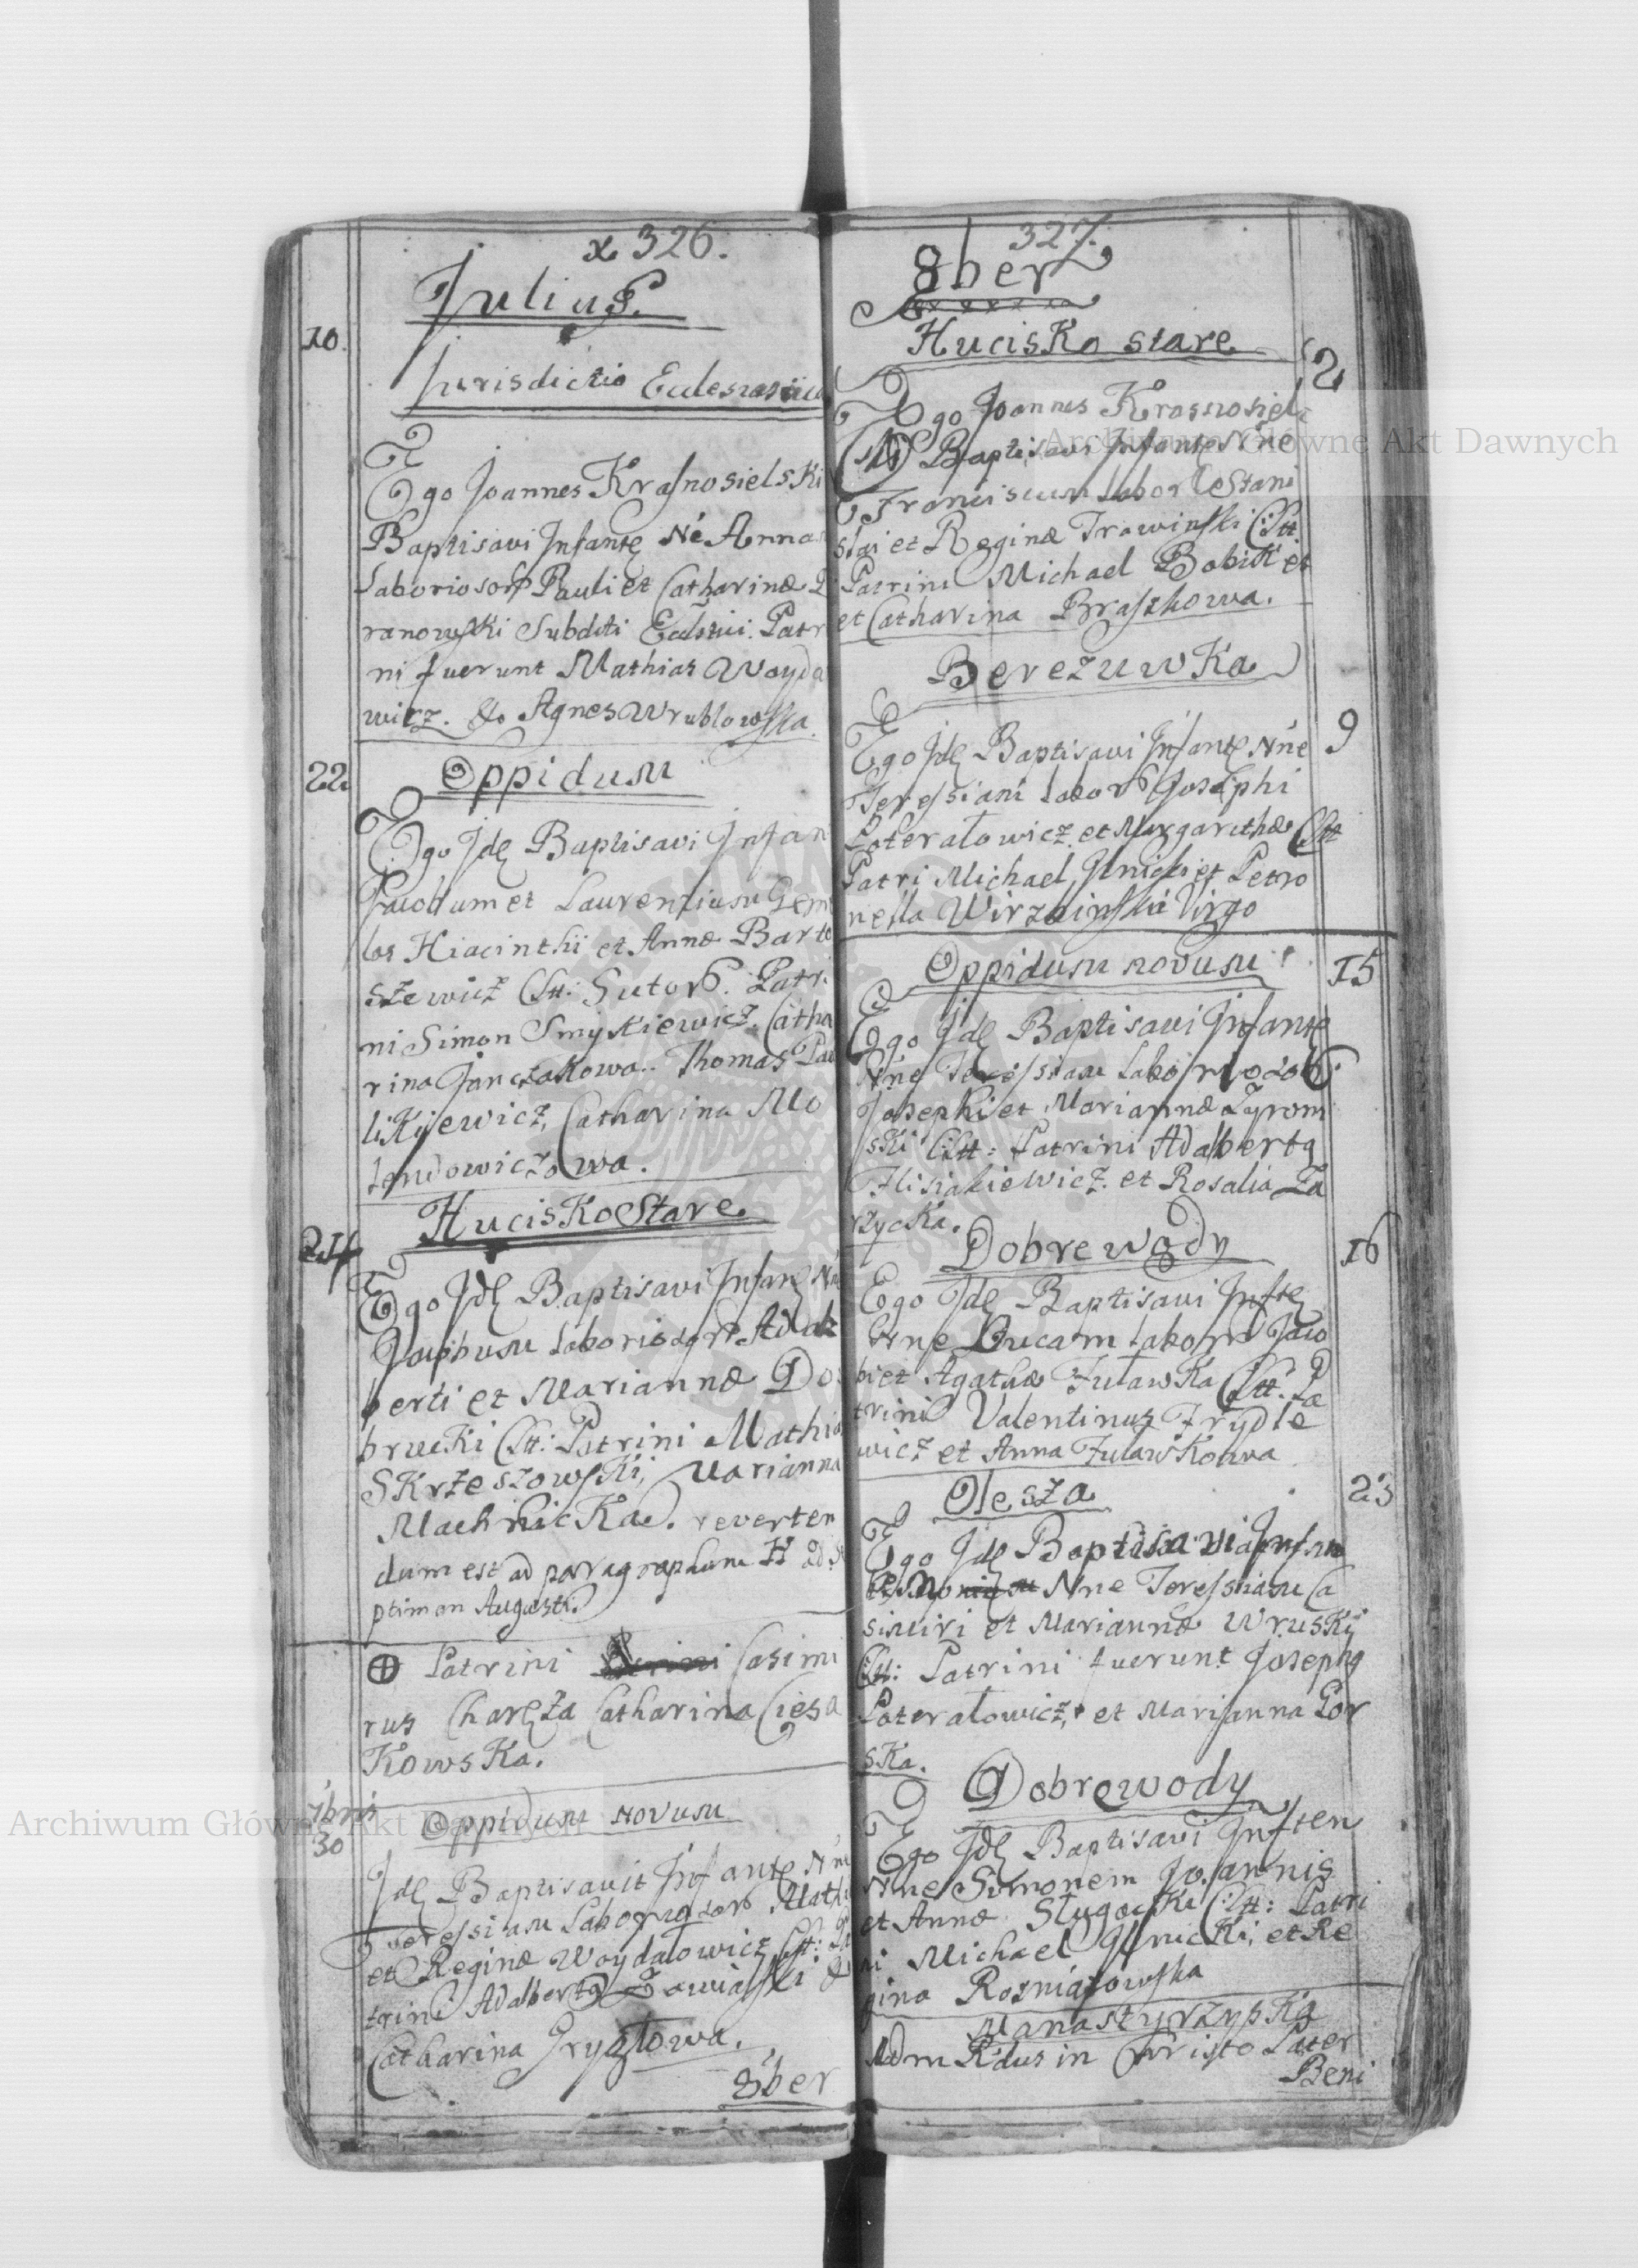 x 326.
Julius.
10.
Jurisdictio Eclesiastica
Ego Joannes Krasnosielski
Baptisavi Infantę Né Anna
Laboriosor Pauli et Catharinæ
ranowski Subditi Patr
ni fuerunt Mathias Woyda
wicz. & Agnes Wrublowska.
22
Oppidum
Ego Jdę Baptisavi Infan
Jacobum et Laurentium Geme
los Hiacinthi et Annæ Barto
szewicz CStt: Sutor. Patri
ni Simon Smykiewicz, Catha
rina Janczakowa.. Thomas Pau
likijewicz, Catharina Mo
lendowiczowa.
Hucisko Stare.
24
Ego Jdę Baptisavi Infanę Nn
Jacobum Laboriosor Adal
berti et Mariannæ Do
brucki CStt: Patrini Mathia
Skrzeszowski, Marianna
Machnicka. reverten
dum est ad paragraphum
ptiman Augusti.
⊕ Patrini Casimi
rus Charęza Catharina Ciesa
Kowska.
7bris
30
Oppidum novum
Jdę Baptisavit Infantę Nne
Teressiam Laboriosor Mathi
et Reginæ Woydatowicz CStt: Pa
trini Adalbertg Zawiaski &
Catharina Gryglowa.
8ber
327.
8ber
Hucisko stare
2
Ego Joannes Krasnosiel
ski Baptisavi Infantę Nne
Franciscum Labor Stani
slai et Reginæ Trawinski CStt.
Patrini Michael Babik et
et Catharina Braszkowa.
Berezuwka
9
Ego Jdę Baptisavi Infantę Nne
Teressiam Labor Josephi
Poteratowicz et Margarithæ CStt
Patri Michael Ilnicki et Petro
nella Wirzbinska Virgo
Oppidum novum
15
Ego Jdę Baptisavi Infantę
Nne Teressiam Laboriosor
Josephi et Mariannæ Zyrom
ski CStt: Patrini Adalbertg
Flisiakiewicz. et Rosalia Za
rzycka.
Dobre wody
16
Ego Jdę Baptisavi Inftę
Nne Lucam Labor Jaco
bi et Agathæ Zuławka CStt. Pa
trini Valentinus Frydle
wicz et Anna Zuławkowa
Olesza
23
Ego Jdę Baptisavi Infan
Nne Teressiam Ca
simiri et Mariannæ Wruski
CStt: Patrini fuerunt Josephg
Poteratowicz, et Marijanna Gor
ska.
Dobrewody
Ego Jdę Baptisavi Inften
Nne Simonem Joannis
et Annæ Sługocki CStt: Patri
ni Michael Ilnicki, et Re
gina Rozniatowska
Manastyrzyska
Adm Rdus in Christo Pater
Beni
Archiwum Główne Akt Dawnych
Archiwum Główne Akt Dawnych